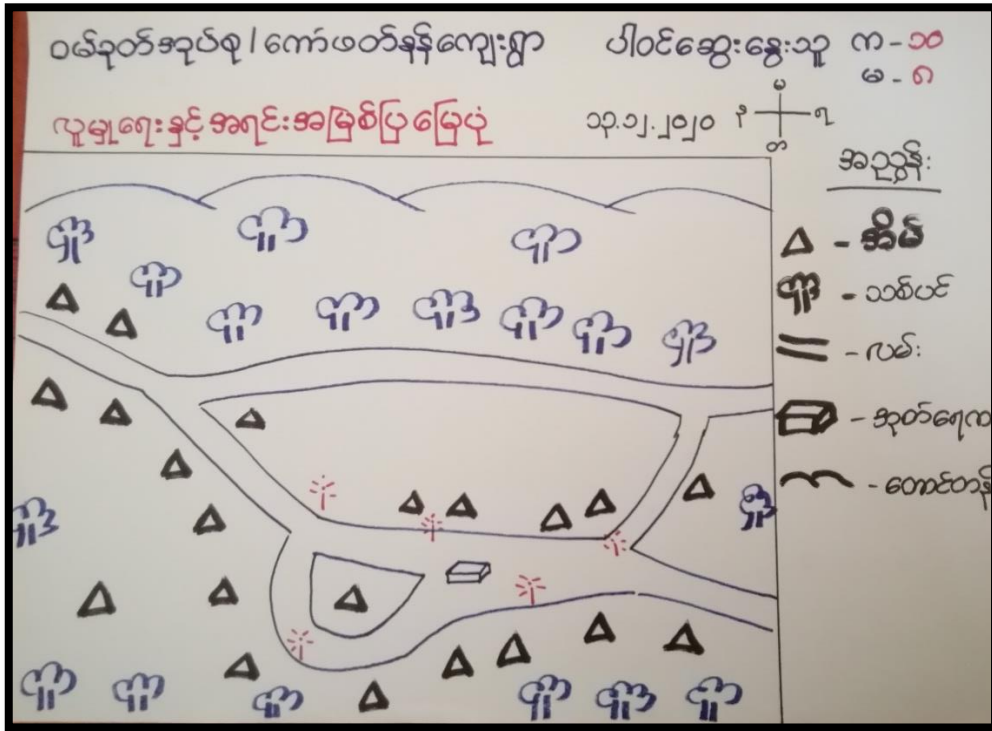 ဝမ်ခုတ်အုပ်စု / ကော်ဖတ်နန်ကျေးရွာ ပါဝင်ဆွေးနွေးသူ က - ၁၀
မ - ၈
လူမှုရေးနှင့်အရင်းအမြစ်ပြမြေပုံ ၁၃.၁၂.၂၀၂၀
မ
တ
အညွှန်း
အိမ်
သစ်ပင်
လမ်း
အုတ်ရေက
တောင်တန်